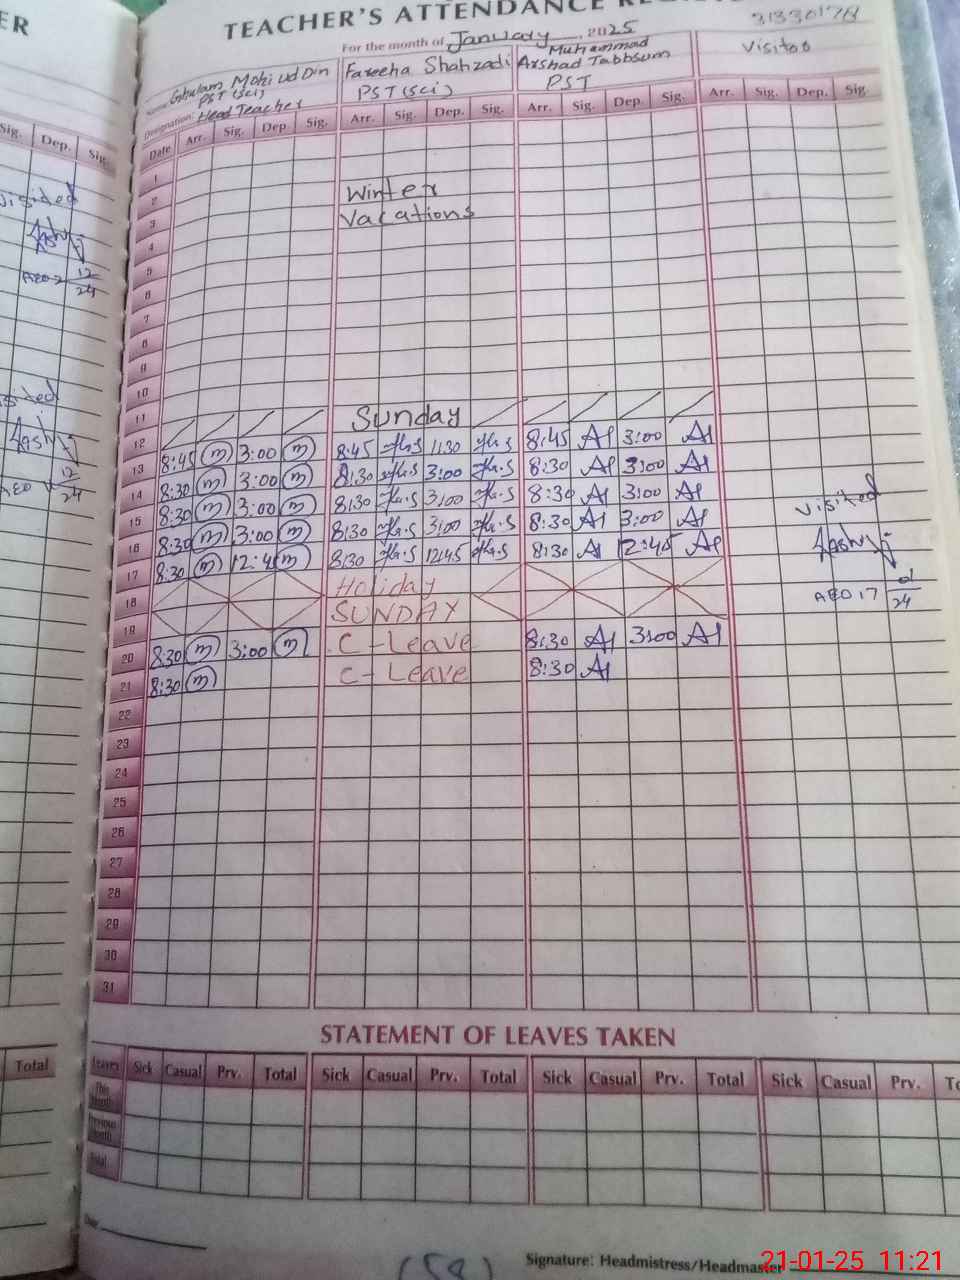 ER
TEACHER'S ATTENDANCE
For the month of January, 2025
31330174
Ghulam Mohi ud Din
PST (sci)
Designation: Head Teacher
Fareeha Shahzadi
PST (sci)
Muhammad
Arshad Tabbsum
PST
Visitos
Sig. Dep. Sig.
Date Arr. Sig. Dep Sig. Arr. Sig. Dep. Sig. Arr. Sig. Dep. Sig. Arr. Sig. Dep. Sig.
1
2 Winter
3 Vacations
4
5
6
7
8
9
10
11
12 Sunday
13 8:45 m 3:00 m 8:45 1:30 8:45 A 3:00 A
14 8:30 m 3:00 m 8:30 3:00 8:30 A 3:00 A
15 8:30 m 3:00 m 8:30 3:00 8:30 A 3:00 A
16 8:30 m 3:00 m 8:30 3:00 8:30 A 3:00 A
17 8:30 m 12:45 m 8:30 12:45 8:30 A 12:45 A
18 Holiday
19 SUNDAY
20 8:30 m 3:00 m C-Leave 8:30 A 3:00 A
21 8:30 m C-Leave 8:30 A
22
23
24
25
26
27
28
29
30
31
Visited
AEO 17
24
Visited
12
24
12
24
STATEMENT OF LEAVES TAKEN
Total
Leaves Sick Casual Prv. Total Sick Casual Prv. Total Sick Casual Prv. Total Sick Casual Prv.
This Month
Previous Month
Total
Date
(58)
Signature: Headmistress/Headmaster
21-01-25 11:21